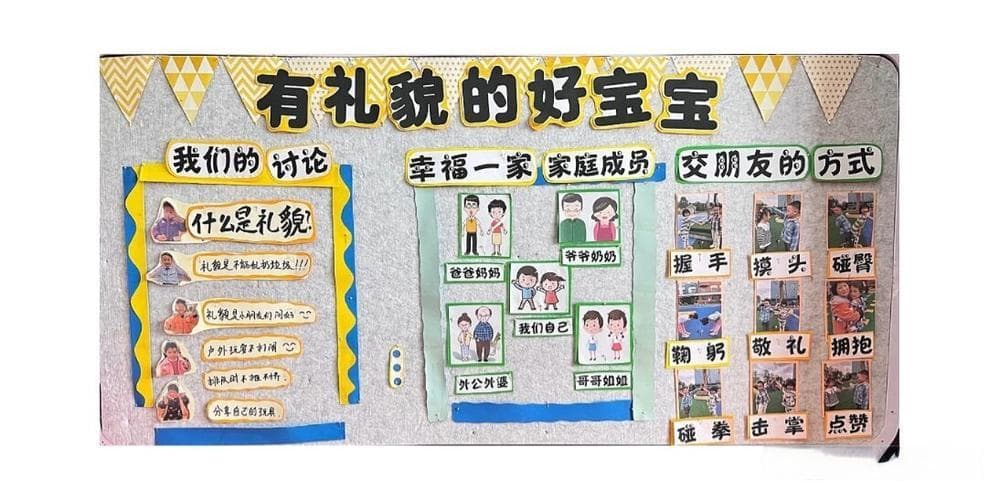 有礼貌的好宝宝
我们的讨论
什么是礼貌?
礼貌是不能乱扔垃圾!!!
礼貌是小朋友们问好
户外玩耍不打闹
排队时不推不挤
分享自己的玩具
幸福一家 家庭成员
爸爸妈妈
爷爷奶奶
我们自己
外公外婆
哥哥姐姐
交朋友的方式
握手 摸头 碰臀
鞠躬 敬礼 拥抱
碰拳 击掌 点赞